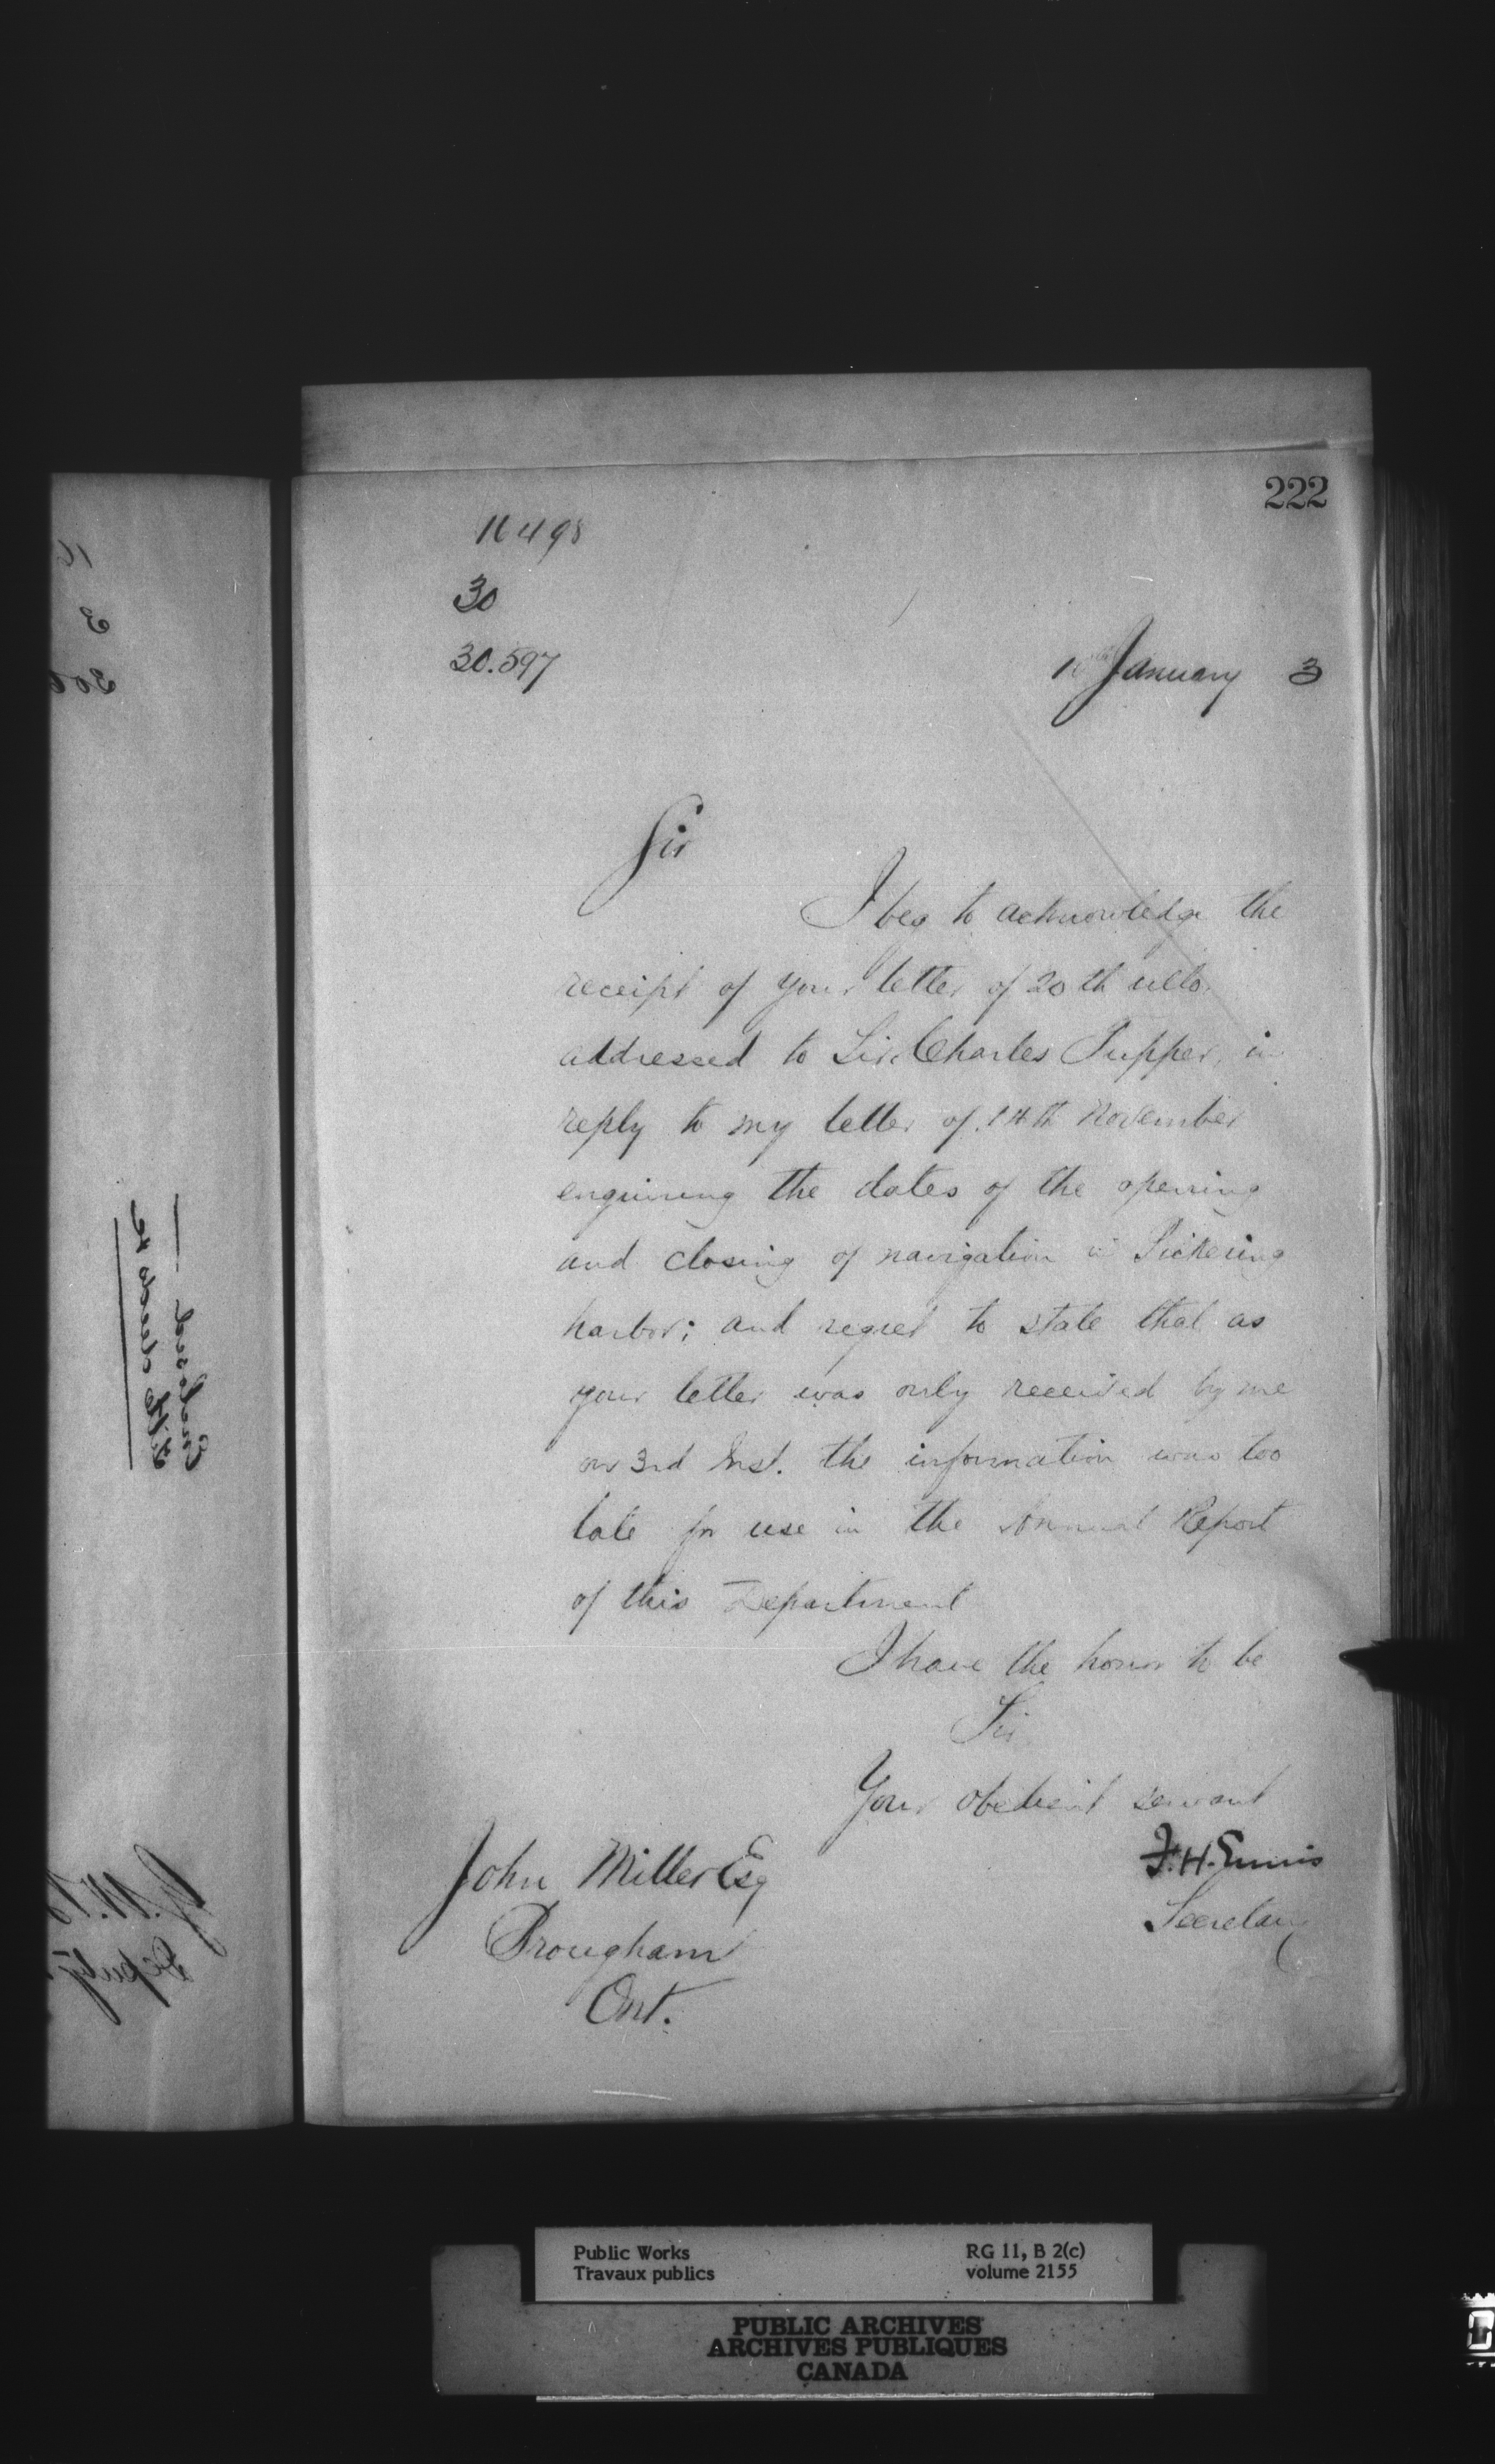 222
11498
30
30.597
January 3
Sir
I beg to acknowledge the
receipt of your letter of 20th ulto.
addressed to Sir Charles Tupper, in
reply to my letter of 14th November
enquiring the dates of the opening
and closing of navigation in Pickering
harbor; and regret to state that as
your letter was only received by me
on 3rd Inst. the information was too
late for use in the Annual Report
of this Department
I have the honor to be
Sir
Your obedient servant
F.H. Ennis
Secretary
John Miller Esq
Brougham
Ont.
Public Works
Travaux publics
RG 11, B 2(c)
volume 2155
PUBLIC ARCHIVES
ARCHIVES PUBLIQUES
CANADA